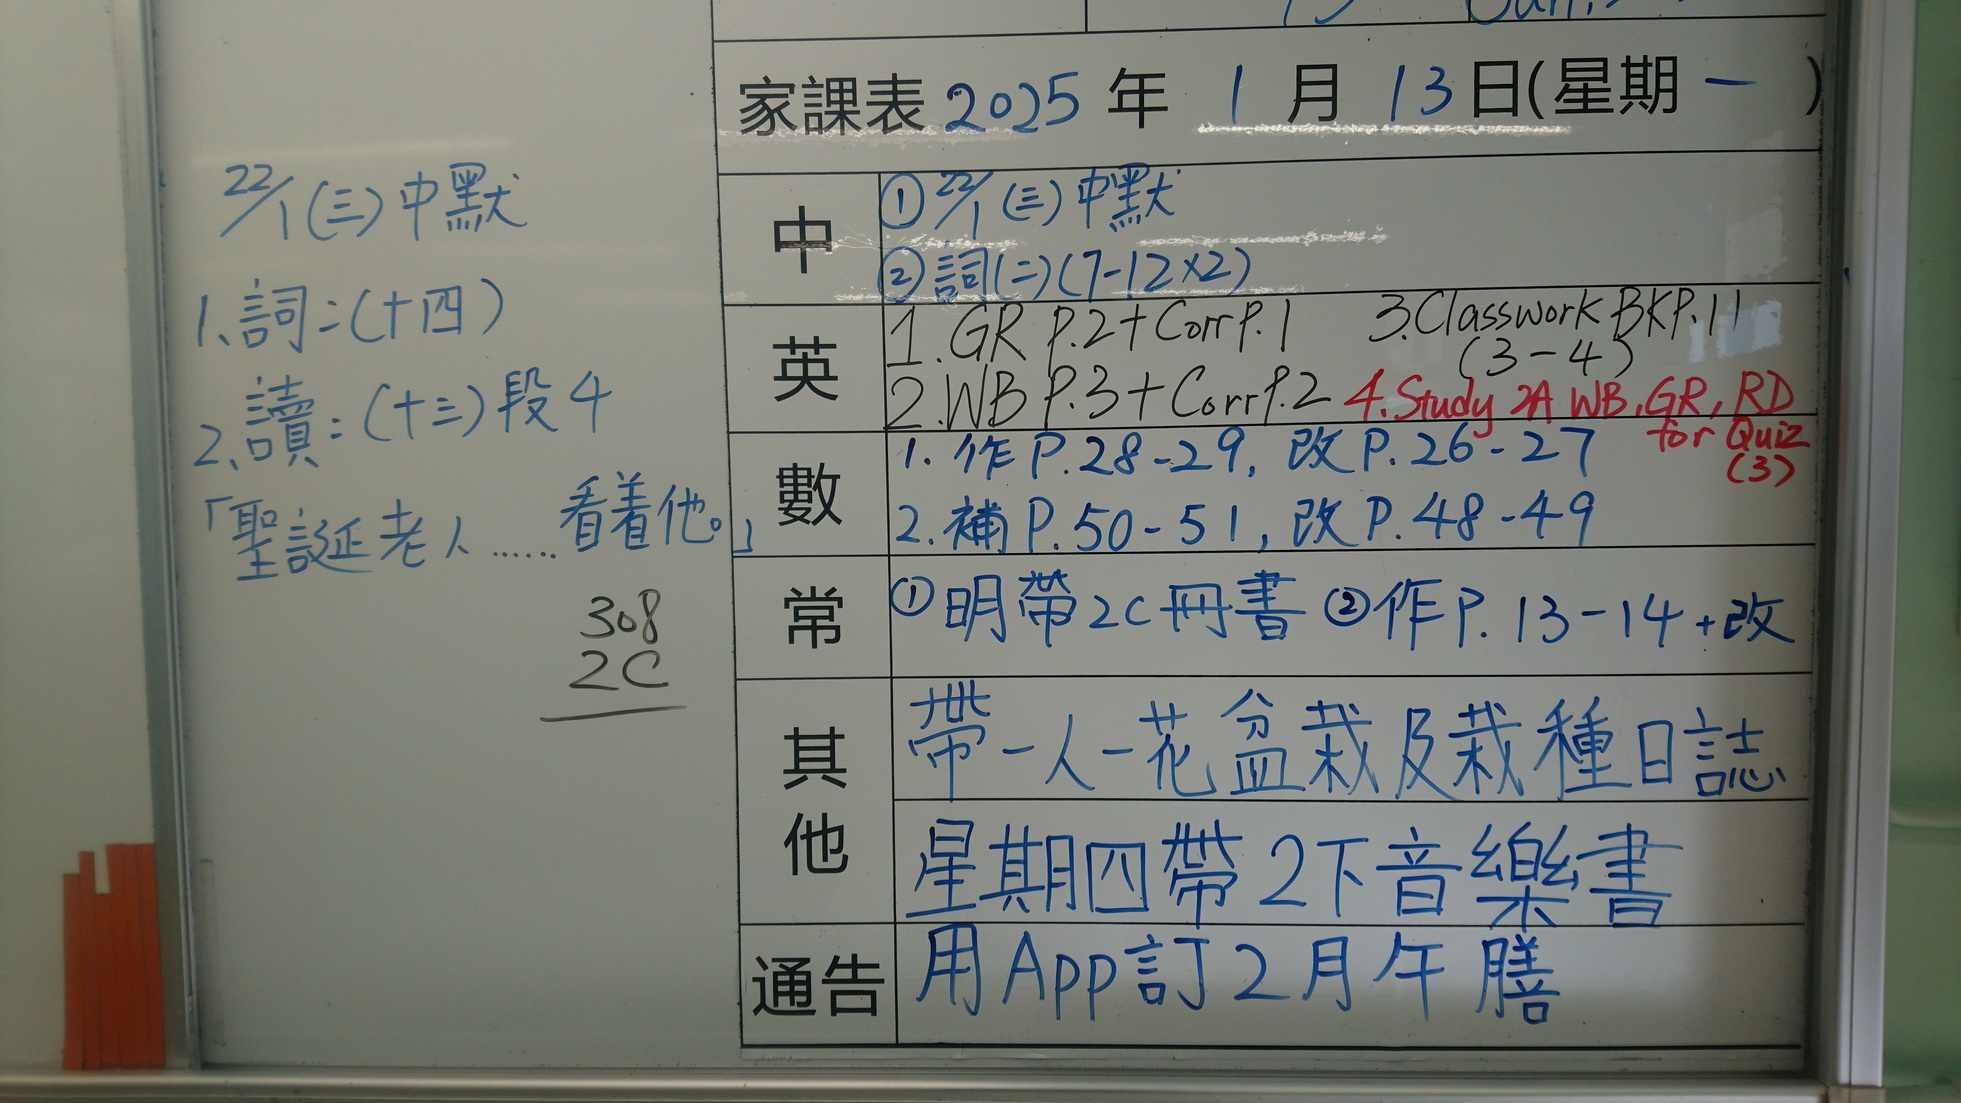 家課表 2025 年 1 月 13 日(星期 一 )
中
① 22/1 (三) 中默
② 詞(二)(7-12×2)
英
1. GR P.2 + Corr P.1
2. WB P.3 + Corr P.2
3. Classwork BK P.11
(3-4)
4. Study 2A WB, GR, RD
for Quiz
(3)
數
1. 作 P.28-29, 改 P.26-27
2. 補 P.50-51, 改 P.48-49
常
① 明帶2C冊書 ② 作P. 13-14 + 改
其他
帶一人一花盆栽及栽種日誌
星期四帶2下音樂書
通告
用App訂2月午膳
22/1 (三) 中默
1. 詞:(十四)
2. 讀:(十三)段4
「聖誕老人……看着他。」
308
2C